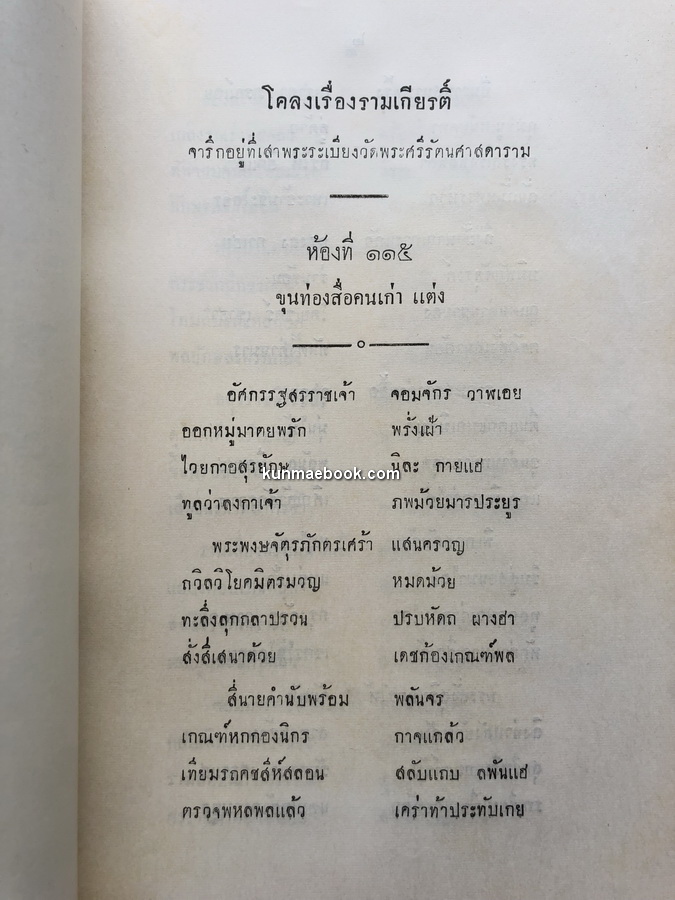 โคลงเรื่องรามเกียรติ์
จารึกอยู่ที่เสาพระระเบียงวัดพระศรีรัตนศาสดาราม
ห้องที่ ๑๑๕
ขุนท่องสื่อคนเก่า แต่ง
อัศกรรฐสรราชเจ้า จอมจักร วาพเอย
ออกหมู่มาตยพรัก พรั่งเฝ้า
ไวยกาอสุรยักษ นิละ กายแฮ
kunmaebook.com
ทูลว่าลงกาเจ้า ภพม้วยมารประยูร
พระพงษจัตุรภักตรเศร้า แสนครวญ
ถวิลวิโยคมิตรมวญ หมดม้วย
ทะลึ่งลุกกลาปรวน ปรบหัดถ ผางฮา
สั่งสี่เสนาด้วย เดชก้องเกณฑ์พล
สี่นายคำนับพร้อม พลันจร
เกณฑ์หกกองนิกร กาจแกล้ว
เทียมรถคชสีห์สลอน สลับแถบ ลพันแฮ
ตรวจพหลพลแล้ว เคร่าท้าประทับเกย